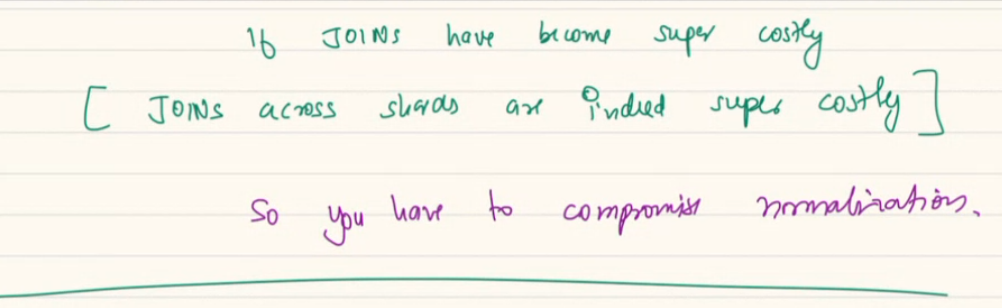 If JOINs have become super costly
[ JOINs across shards are indeed super costly ]
So you have to compromise normalization.